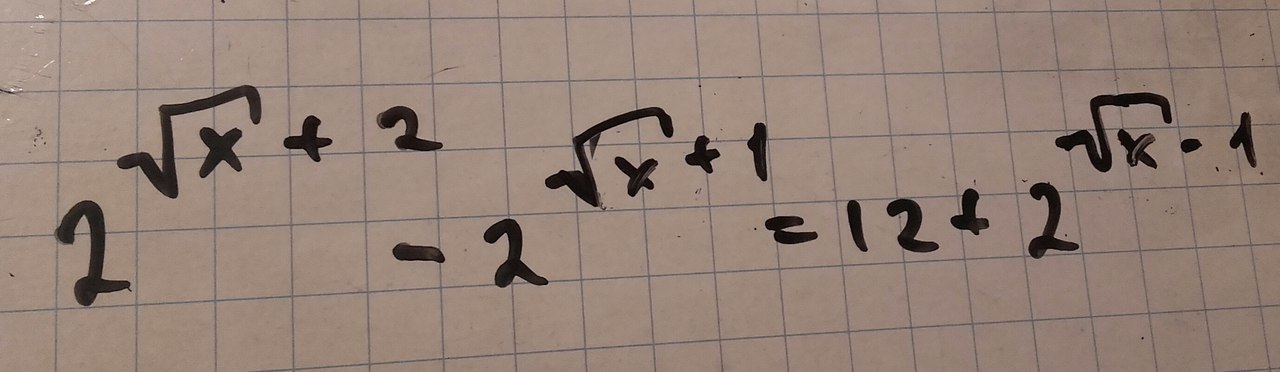 2^{√x + 2} - 2^{√x + 1} = 12 + 2^{√x - 1}